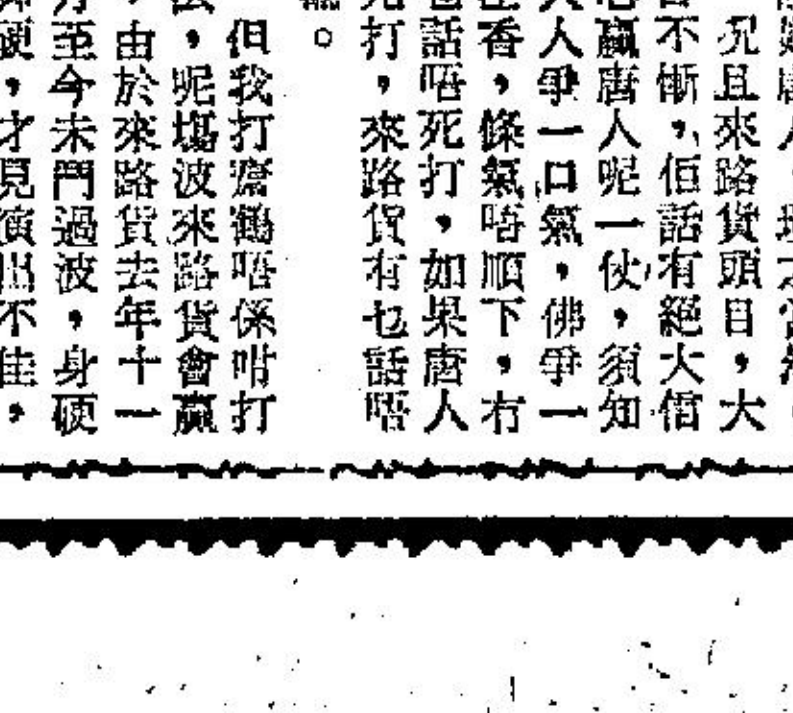 況且來路貨頭目，大
不慚，佢話有絕大信
贏唐人呢一仗，須知
人爭一口氣，佛爭一
香，條氣唔順下，冇
話唔死打，如果唐人
打，來路貨有乜話唔
。
但我打齋鶴唔係咁打
，呢塲波來路貨會贏
由於來路貨去年十一
至今未鬥過波，身硬
硬，才見演出不佳，